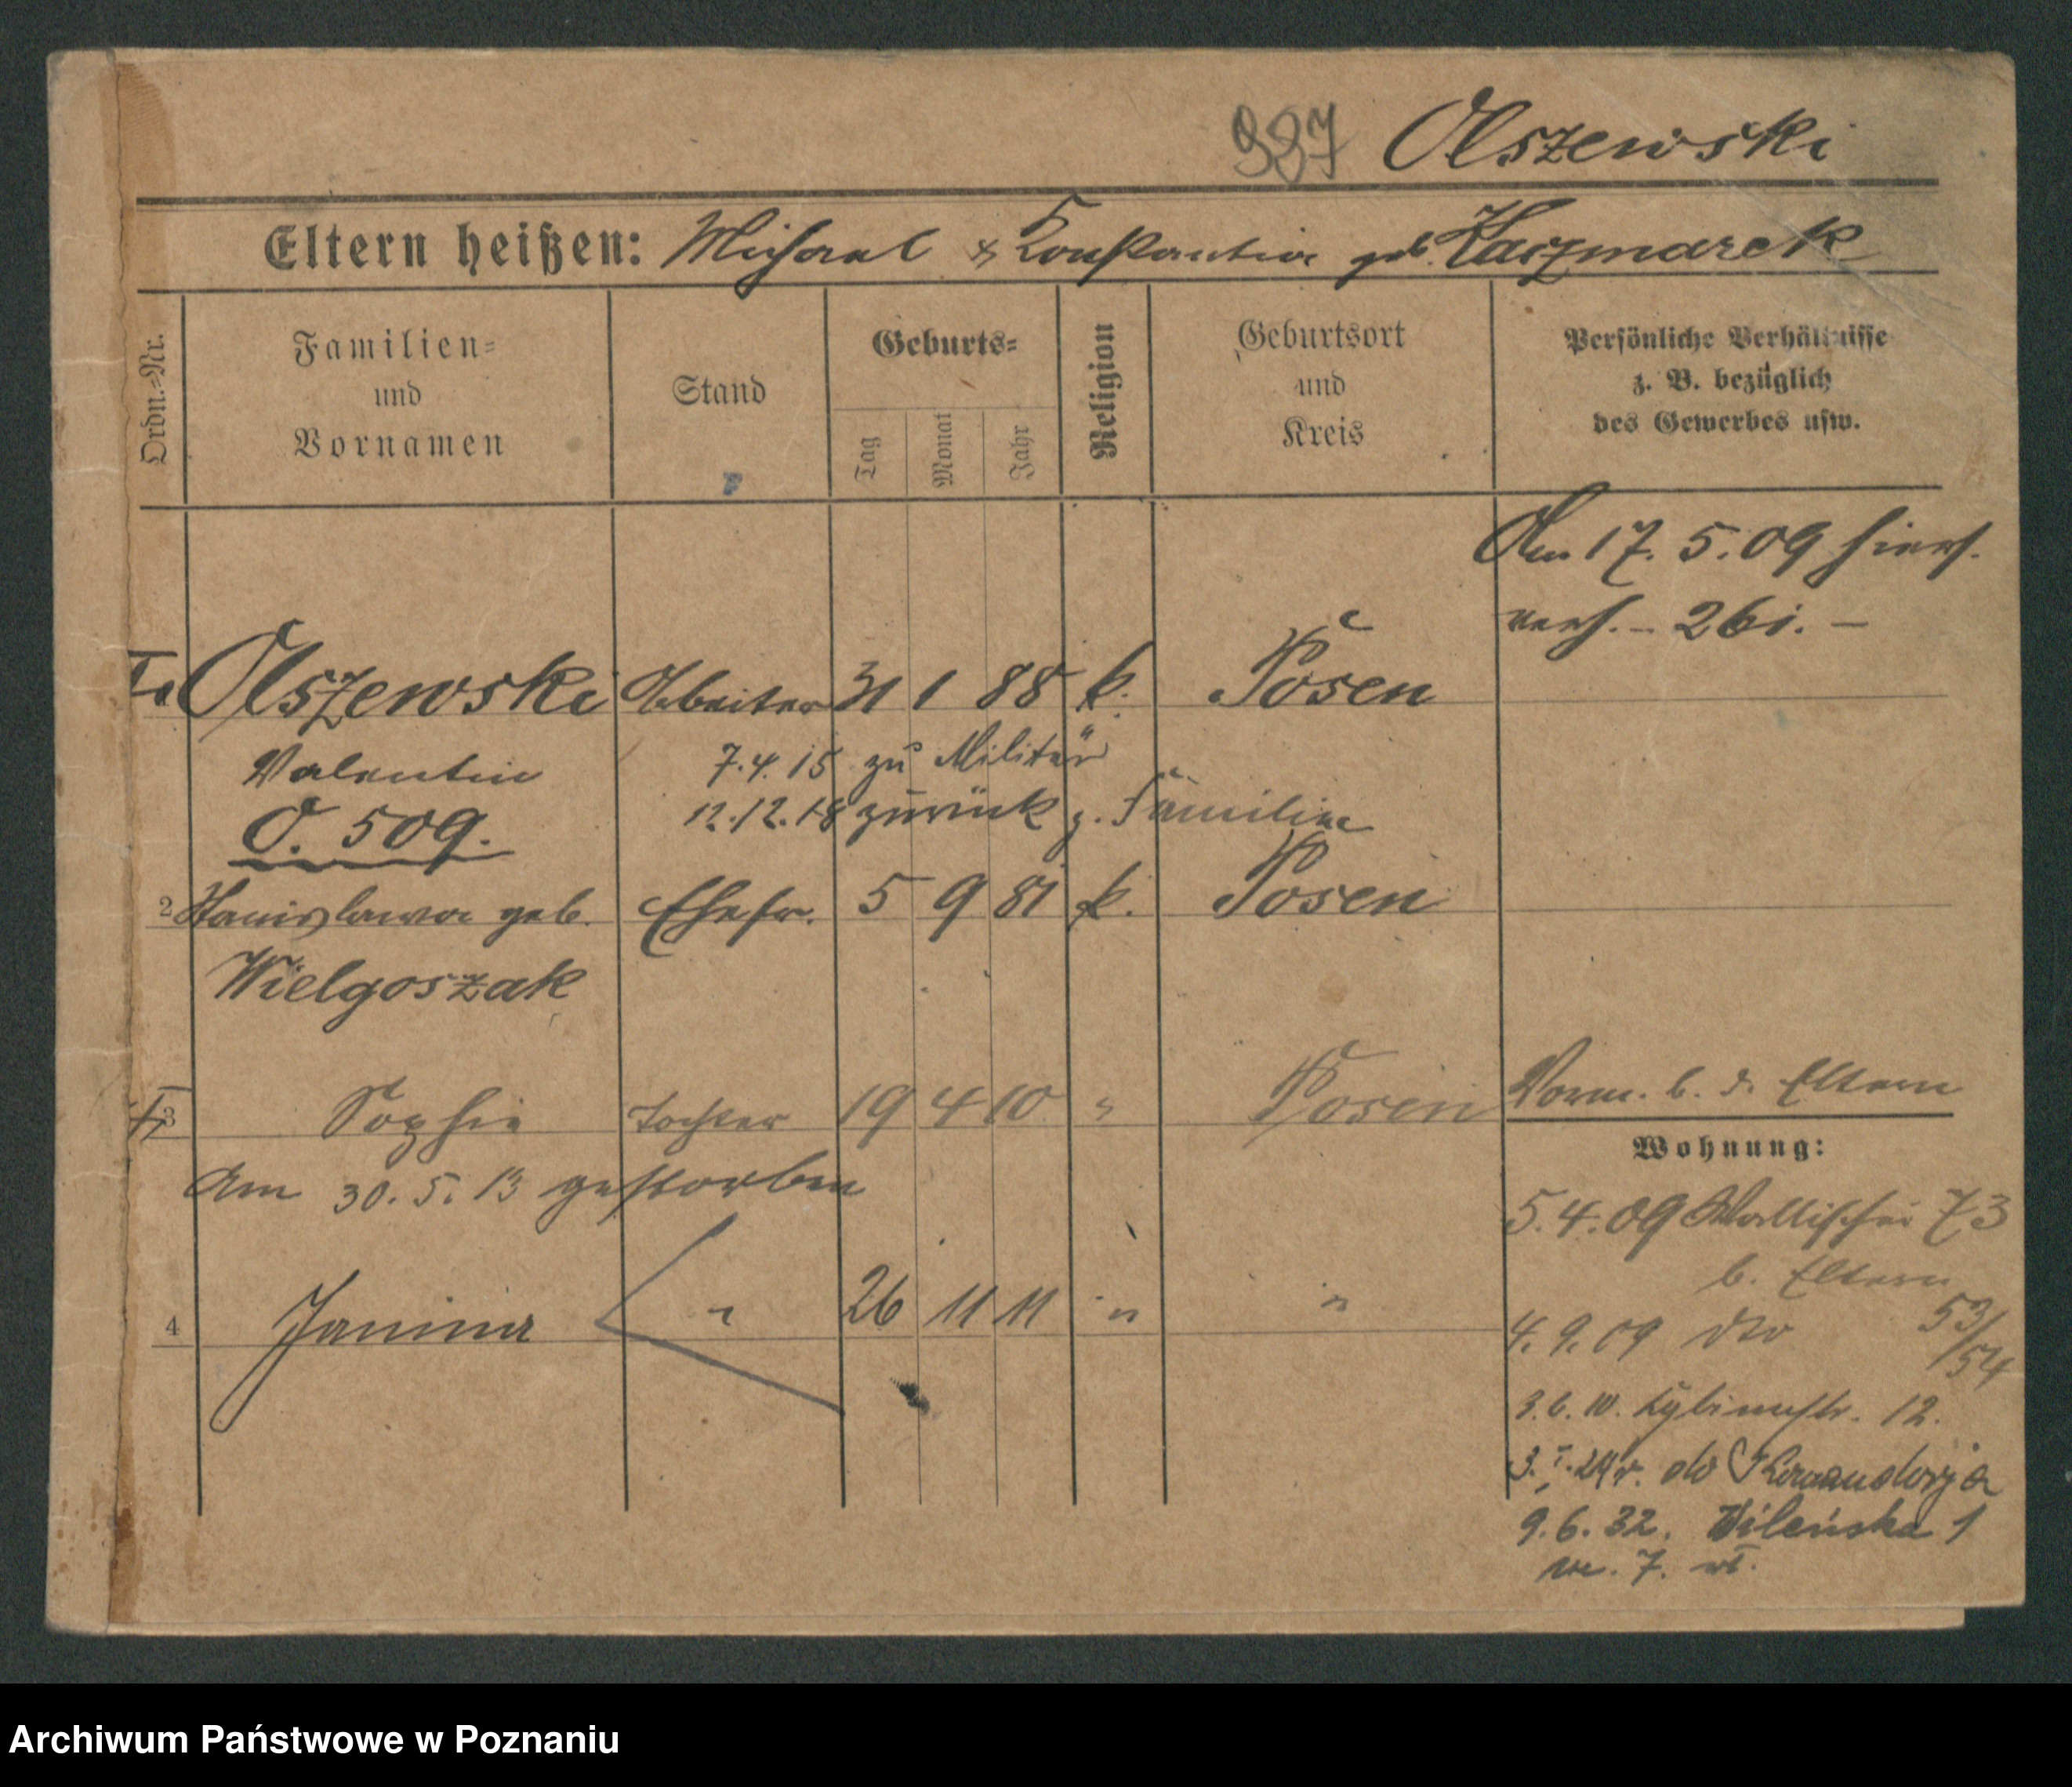 337 Olszewski
Eltern heißen: Michael & Konstantia geb. Kaczmarek
Ordn.=Nr.
Familien=
und
Vornamen
Stand
Geburts=
Tag
Monat
Jahr
Religion
Geburtsort
und
Kreis
Persönliche Verhältnisse
z. B. bezüglich
des Gewerbes usw.
Am 17. 5. 09 hiers.
verh. –
I. Olszewski Arbeiter 31 1 88 k. Posen
Valentin 7.4.15 zu Militär
O. 509. 12.12.18 zurück z. Familie
2 Stanislawa geb. Ehefr. 5 9 81 k. Posen
Wielgoszak
3 Sophie Tochter 19 4 10 " Posen
Am 30.5.13 gestorben
Vorm. b. d. Eltern
Wohnung:
5.4.09 Wallischei 73
b. Eltern
4 Janina " 26 11 11 " "
4.9.09 dto 53/54
3.6.10. Cybinastr. 12.
do
9.6.32. Wileńska 1
m. 7. wł.
Archiwum Państwowe w Poznaniu